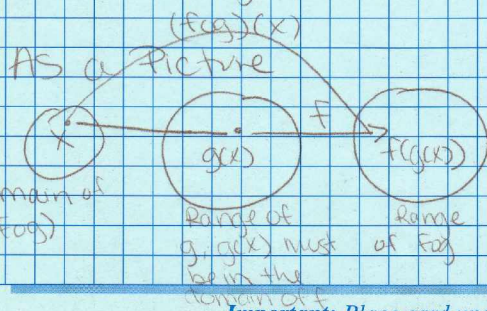 (fog)(x)
As a Picture
f
x
g(x)
f(g(x))
main of
fog)
Range of
g, g(x) must
be in the
domain of f
Range
of fog
Important: Please read